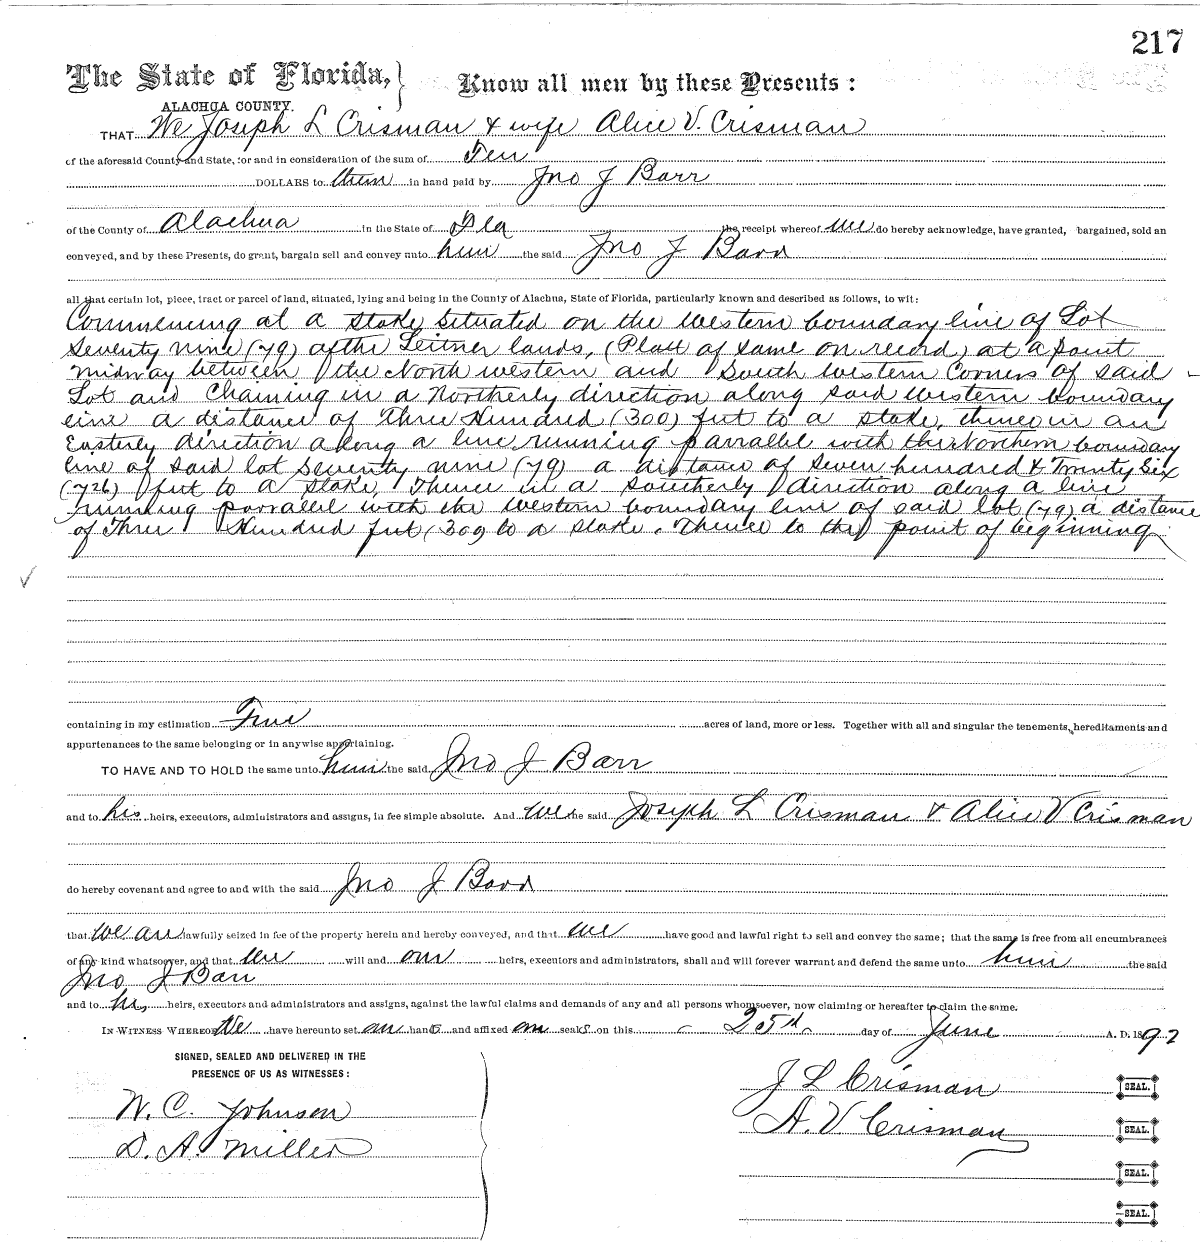 217
The State of Florida,} Know all men by these Presents:
ALACHUA COUNTY.
THAT We Joseph L Crisman & wife Alice V. Crisman
of the aforesaid County and State, for and in consideration of the sum of Ten
DOLLARS to them in hand paid by Jno J Barr
of the County of Alachua in the State of Fla the receipt whereof we do hereby acknowledge, have granted, bargained, sold an
conveyed, and by these Presents, do grant, bargain sell and convey unto him the said Jno J Barr
all that certain lot, piece, tract or parcel of land, situated, lying and being in the County of Alachua, State of Florida, particularly known and described as follows, to wit:
Commencing at a stake situated on the Western boundary line of Lot
Seventy nine (79) of the Leitner lands, (Platt of same on record) at a point
midway between the North western and South Western Corners of said
Lot and Chaining in a Northerly direction along said Western boundary
line a distance of Three Hundred (300) feet to a stake, thence in an
Easterly direction along a line running parrallel with the Northern boundary
line of said lot Seventy nine (79) a distance of Seven hundred & Twenty Six
(726) feet to a stake, Thence in a southerly direction along a line
running parrallel with the Western boundary line of said lot (79) a distance
of Three Hundred feet (300) to a stake. Thence to the point of beginning
containing in my estimation Five acres of land, more or less. Together with all and singular the tenements, hereditaments and
appurtenances to the same belonging or in anywise appertaining.
TO HAVE AND TO HOLD the same unto him the said Jno J Barr
and to his heirs, executors, administrators and assigns, in fee simple absolute. And we he said Joseph L Crisman & Alice V Crisman
do hereby covenant and agree to and with the said Jno J Barr
that we are lawfully seized in fee of the property herein and hereby conveyed, and that we have good and lawful right to sell and convey the same; that the same is free from all encumbrances
of any kind whatsoever, and that we will and our heirs, executors and administrators, shall and will forever warrant and defend the same unto him the said
Jno J Barr
and to his heirs, executors and administrators and assigns, against the lawful claims and demands of any and all persons whomsoever, now claiming or hereafter to claim the same.
IN WITNESS WHEREOF We have hereunto set our hands and affixed our seals on this 25th day of June A. D. 1892
SIGNED, SEALED AND DELIVERED IN THE
PRESENCE OF US AS WITNESSES:
J L Crisman SEAL.
W. C. Johnson
A. V Crisman SEAL.
D. A. Miller
SEAL.
SEAL.